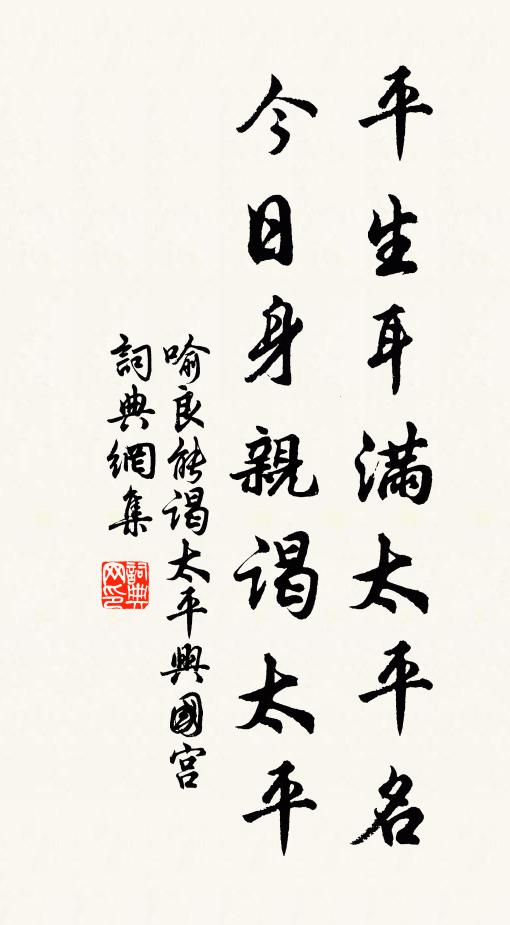 平生耳满太平名
今日身親谒太平
喻良能谒太平興國宫
詞典網集
詞典网印